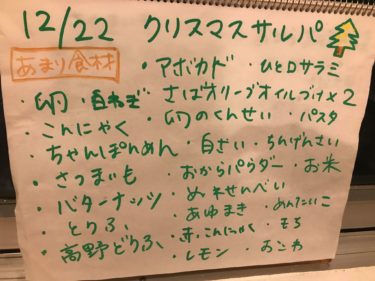 12/22 クリスマスサルパ
あまり食材
・アボカド ・ひと口サラミ
・卵 ・白ねぎ ・さばオリーブオイルづけ×2
・こんにゃく ・卵のくんせい ・パスタ
・ちゃんぽんめん ・白さい ・ちんげんさい
・さつまいも ・おからパウダー ・お米
・バターナッツ ・ぬれせんべい
・とうふ ・あゆまき ・めんたいこ
・高野どうふ ・赤こんにゃく ・もち
・レモン ・おこわ